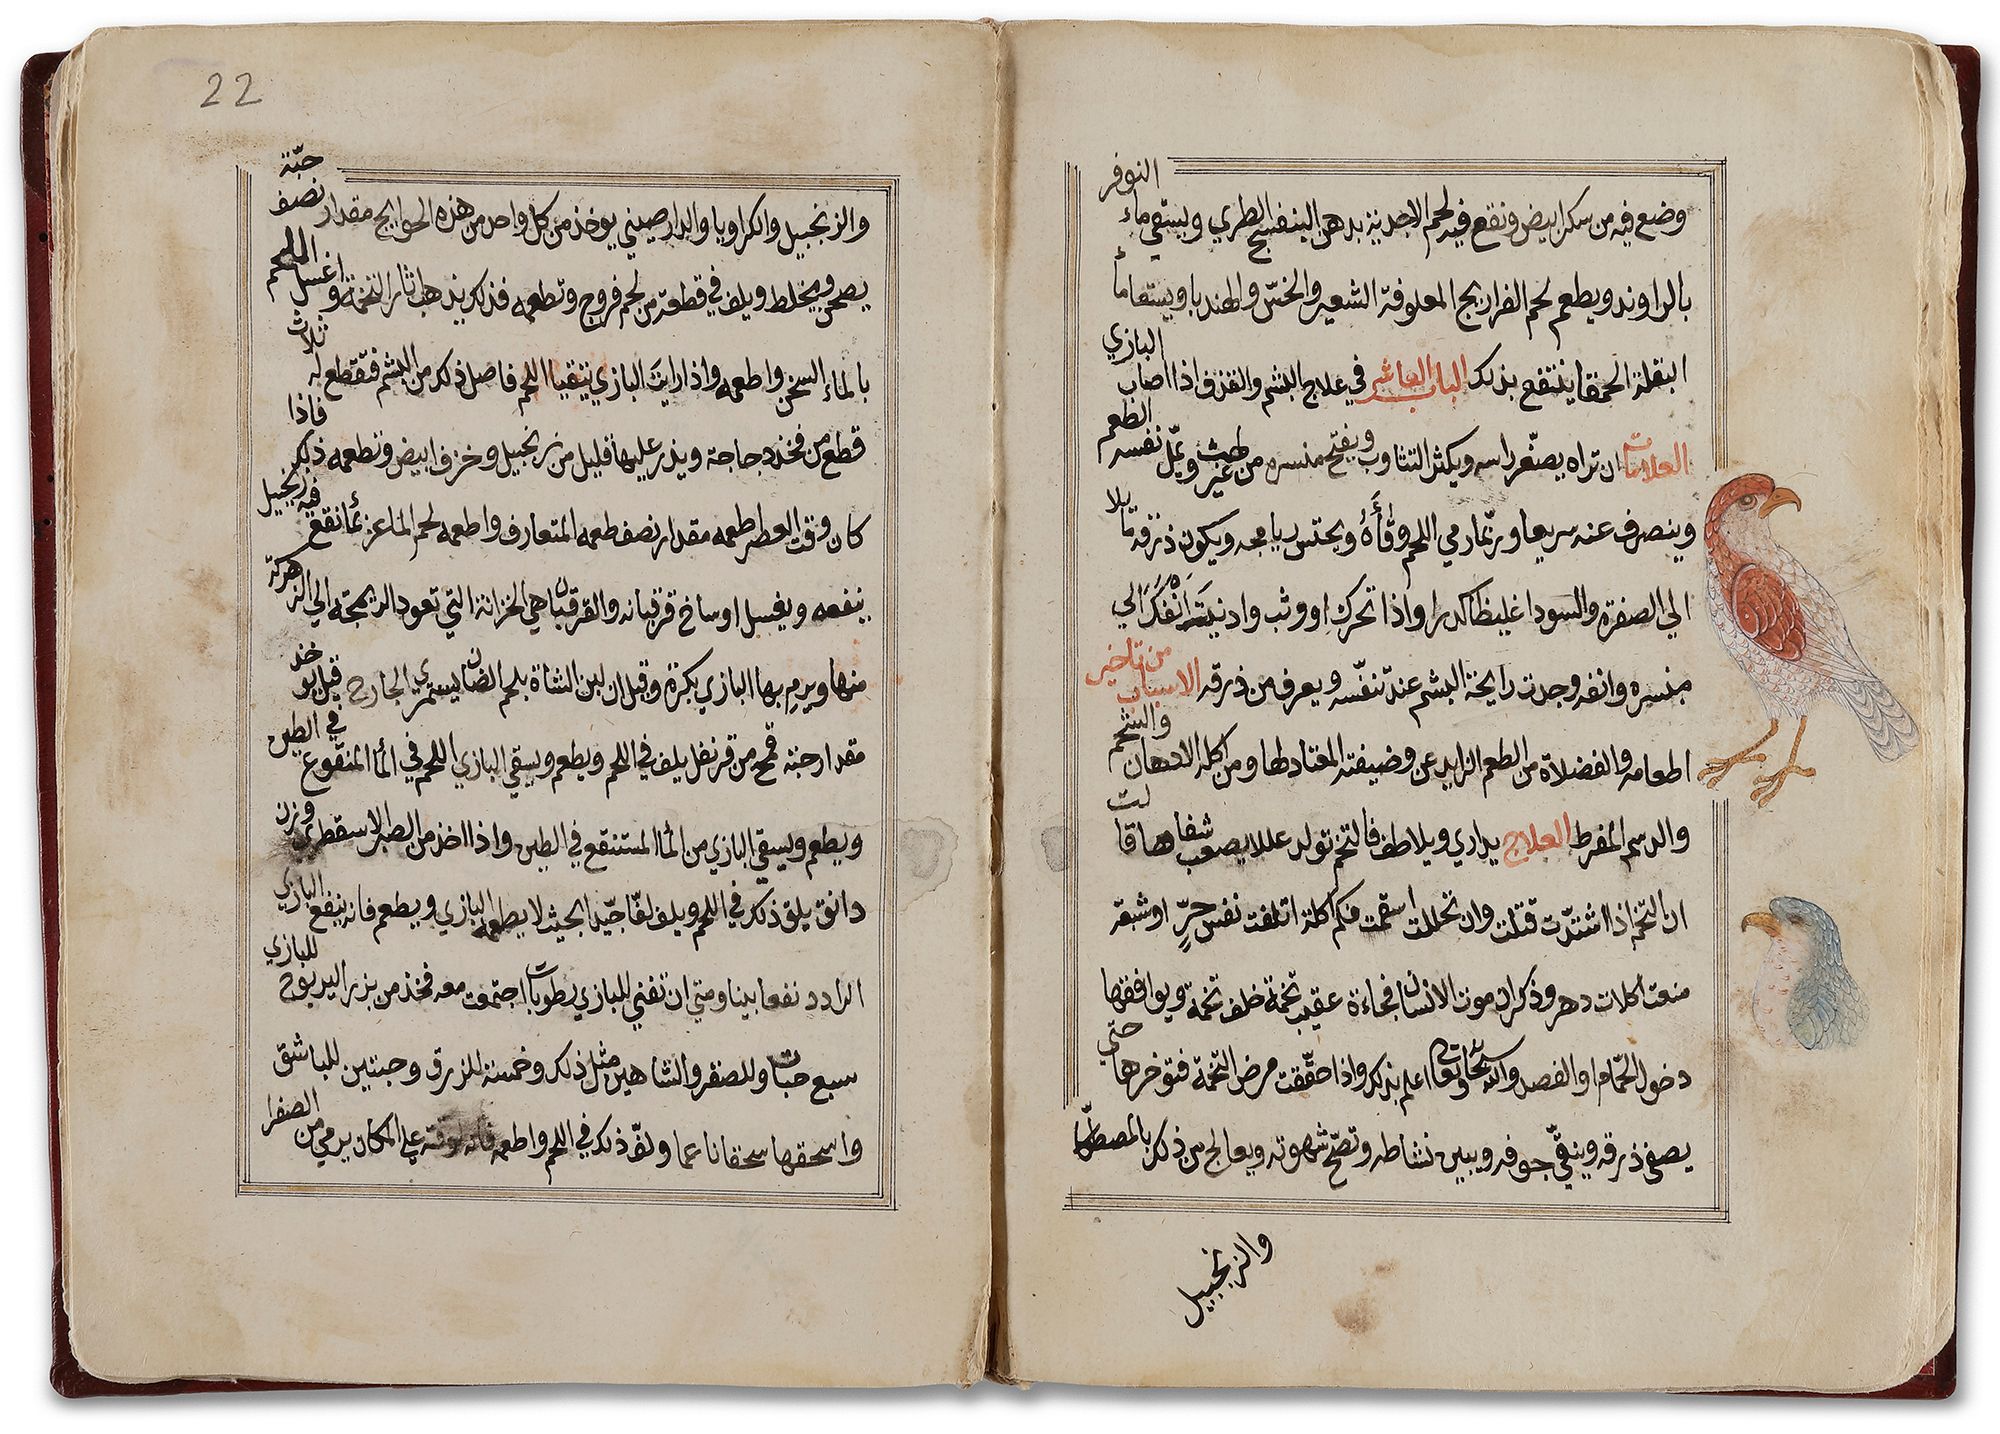 وضع فيه من سكر ابيض ونقع فيه لحم الاجدية بدهن البنفسج الطري ويسقي ماء النوفر
بالراوند ويطعم لحم الفراريج المعلوفة الشعير والخس والهندبا ويستقا ماء
البقلة الحمقا ينتفع بذلك الباب العاشر في علاج البشم والقذف اذا اصاب البازي
العلامات ان تراه يصغر راسه ويكثر التثاوب ويفتح منسره من غير طمث ويمل نفسه الطعم
وينصرف عنه سريعا وربما رمي اللحم وقأه ويحتبس ريامجه ويكون ذرقه مايلا
الي الصفرة والسودا غليظا كدرا واذا تحرك او وثب وادنيته انفك الي
منسره وانفه وجدت رايحة البشم عند تنفسه ويعرف من ذرقه الاسباب من تاخير
اطعامه والفضلاة من الطعم الزايد عن وضيفته المعتاد لها ومن اكله الادهان والشحم
والدسم المفرط العلاج يداري ويلاطف فالتخم تولد عللا يصعب شفاها قالت
ان التخم اذا اشتدت قتلت وان تحللت اسقمت فكم اكلة اتلفت نفس حر او شبعة
منعت اكلات دهر وذكر ان موت الانسان فجاءة عقيب تخمة خلف تخمة ويوافقها
دخول الحمام او الفصد والله سبحانه وتعا اعلم بذلك واذا حققت مرض التخمة فتوخرها حتي
يصفي ذرقه وينقي جوفه ويبين نشاطه وتصح شهوته ويعالج من ذلك بالمصطكا
والزنجبيل
22
والزنجبيل والكراويا والدارصيني يوخذ من كل واحد من هذه الحوايج مقدار نصف حبة
يصحن ويخلط ويلف في قطعة من لحم فروج وتطعمه فذلك يذهب اثار التخمة واغسل اللحم
بالماء السخن واطعمه واذا رايت البازي يتقيا اللحم فاصل ذلك من البشم فتقطع له ثلاث
قطع من فخذ دجاجة ويذر عليها قليل من زنجبيل وخزف ابيض وتطعمه ذلك فاذا
كان وقت العصر اطعمه مقدار نصف طعمه المتعارف واطعمه لحم الماعز بما نقع فيه زنجبيل
ينفعه ويغسل اوساخ قرقبانه والقرقبان هي الخزانة التي تعود الريمجة الي الزهركة
منها ويرم بها البازي بكرة وقيل ان لبن الشاة بلحم الضان يستمري الجارح قيل يوخد
مقدار حبة قمح من قرنفل يلف في اللحم ويطعم ويسقي البازي اللحم في الما المنقوع في الطين
ويطعم ويسقي البازي من الما المستنقع في الطين واذا اخذ من الصبر الاسقطري وزن
دانق يلق ذلك في اللحم ويلف لفا جيدا بحيث لا يطعمه البازي ويطعم فانه ينفع البازي
الرادد نفعا بينا ومتي ان تفني للبازي رطوبات اجتمعت معه فخذ من بزر اليربوح للبازي
سبع حبات وللصقر والشاهين مثل ذلك وخمسة للزرق وحبتين للباشق
واسحقها سحقا ناعما ولف ذلك في اللحم واطعمه فانه لوقته علي المكان يرمي من الصفرا